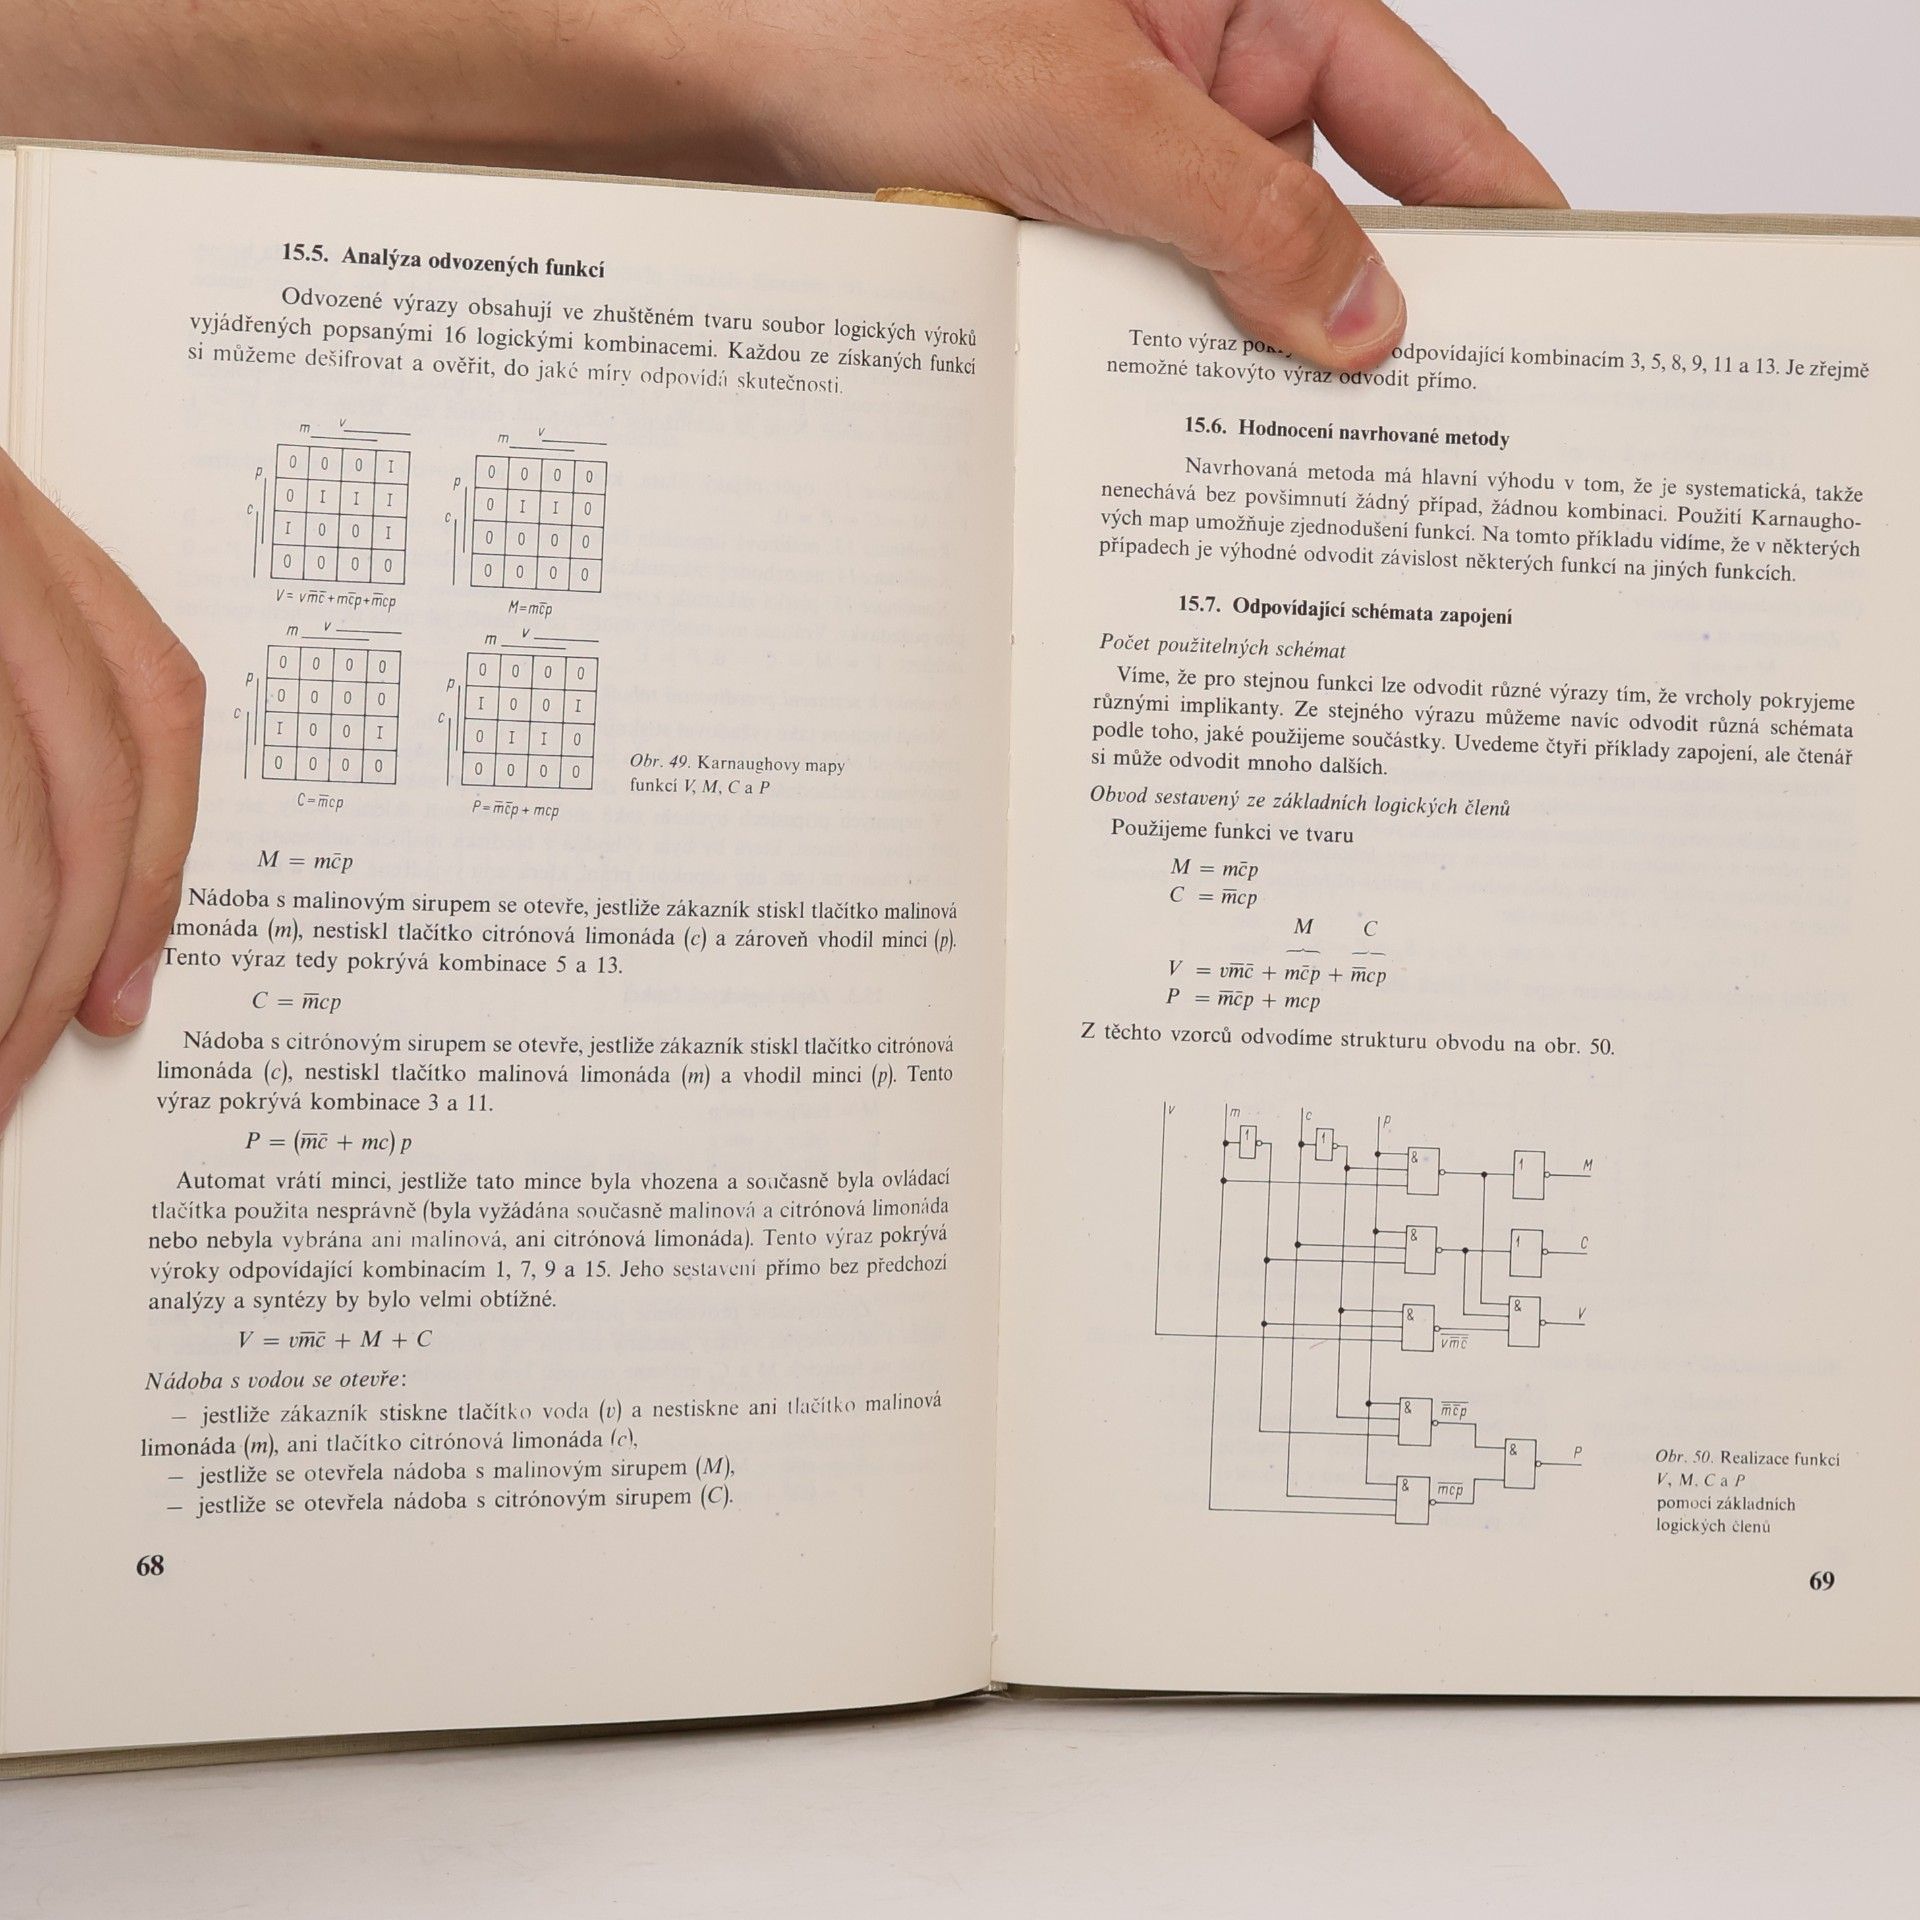 15.5. Analýza odvozených funkcí
Odvozené výrazy obsahují ve zhuštěném tvaru soubor logických výroků
vyjádřených popsanými 16 logickými kombinacemi. Každou ze získaných funkcí
si můžeme dešifrovat a ověřit, do jaké míry odpovídá skutečnosti.
m v
p
c
0 0 0 I
0 I I I
I 0 0 I
0 0 0 0
V = vm̅c̅ + mc̅p + m̅cp
m v
p
c
0 0 0 0
0 I I 0
0 0 0 0
0 0 0 0
M = mc̅p
m v
p
c
0 0 0 0
0 0 0 0
I 0 0 I
0 0 0 0
C = m̅cp
m v
p
c
0 0 0 0
I 0 0 I
0 I I 0
0 0 0 0
P = m̅c̅p + mcp
Obr. 49. Karnaughovy mapy
funkcí V, M, C a P
M = mc̅p
Nádoba s malinovým sirupem se otevře, jestliže zákazník stiskl tlačítko malinová
limonáda (m), nestiskl tlačítko citrónová limonáda (c) a zároveň vhodil minci (p).
Tento výraz tedy pokrývá kombinace 5 a 13.
C = m̅cp
Nádoba s citrónovým sirupem se otevře, jestliže zákazník stiskl tlačítko citrónová
limonáda (c), nestiskl tlačítko malinová limonáda (m) a vhodil minci (p). Tento
výraz pokrývá kombinace 3 a 11.
P = (m̅c̅ + mc) p
Automat vrátí minci, jestliže tato mince byla vhozena a současně byla ovládací
tlačítka použita nesprávně (byla vyžádána současně malinová a citrónová limonáda
nebo nebyla vybrána ani malinová, ani citrónová limonáda). Tento výraz pokrývá
výroky odpovídající kombinacím 1, 7, 9 a 15. Jeho sestavení přímo bez předchozí
analýzy a syntézy by bylo velmi obtížné.
V = vm̅c̅ + M + C
Nádoba s vodou se otevře:
— jestliže zákazník stiskne tlačítko voda (v) a nestiskne ani tlačítko malinová
limonáda (m), ani tlačítko citrónová limonáda (c),
— jestliže se otevřela nádoba s malinovým sirupem (M),
— jestliže se otevřela nádoba s citrónovým sirupem (C).
68
Tento výraz odpovídající kombinacím 3, 5, 8, 9, 11 a 13. Je zřejmě
nemožné takovýto výraz odvodit přímo.
15.6. Hodnocení navrhované metody
Navrhovaná metoda má hlavní výhodu v tom, že je systematická, takže
nenechává bez povšimnutí žádný případ, žádnou kombinaci. Použití Karnaugho-
vých map umožňuje zjednodušení funkcí. Na tomto příkladu vidíme, že v některých
případech je výhodné odvodit závislost některých funkcí na jiných funkcích.
15.7. Odpovídající schémata zapojení
Počet použitelných schémat
Víme, že pro stejnou funkci lze odvodit různé výrazy tím, že vrcholy pokryjeme
různými implikanty. Ze stejného výrazu můžeme navíc odvodit různá schémata
podle toho, jaké použijeme součástky. Uvedeme čtyři příklady zapojení, ale čtenář
si může odvodit mnoho dalších.
Obvod sestavený ze základních logických členů
Použijeme funkci ve tvaru
M = mc̅p
C = m̅cp
M C
V = vm̅c̅ + mc̅p + m̅cp
P = m̅c̅p + mcp
Z těchto vzorců odvodíme strukturu obvodu na obr. 50.
v m c p
1 1
& 1 M
& 1 C
& & V
v̅m̅c̅
& m̅c̅p̅
& P
& m̅c̅p̅
Obr. 50. Realizace funkcí
V, M, C a P
pomocí základních
logických členů
69